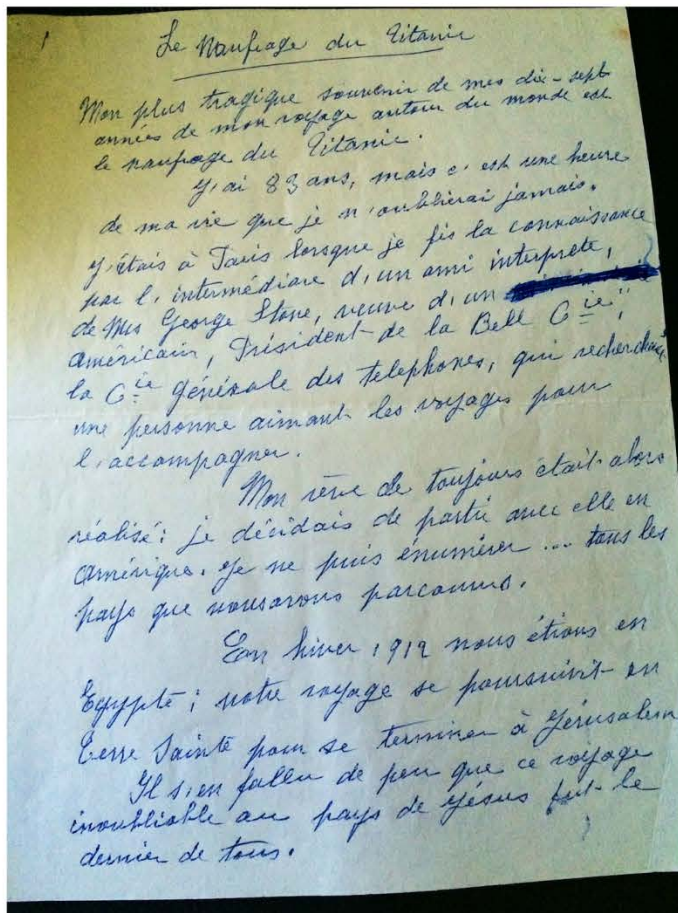 1
Le Naufrage du Titanic
Mon plus tragique souvenir de mes dix-sept
années de mon voyage autour du monde est
le naufrage du Titanic.
J'ai 83 ans, mais c'est une heure
de ma vie que je n'oublierai jamais.
J'étais à Paris lorsque je fis la connaissance
par l'intermédiare d'un ami interprete,
de Mrs George Stone, veuve d'un
américain, Président de la Bell Cie",
la Cie générale des telephones, qui recherchait
une personne aimant les voyages pour
l'accompagner.
Mon rêve de toujours était alors
réalisé: je décidais de partir avec elle en
Amérique. Je ne puis énumérer ... tous les
pays que nous avons parcourus.
En hiver 1912 nous étions en
Egypte; notre voyage se poursuivit en
Terre Sainte pour se terminer à Jérusalem
Il s'en fallu de peu que ce voyage
inoubliable au pays de Jésus fut le
dernier de tous.